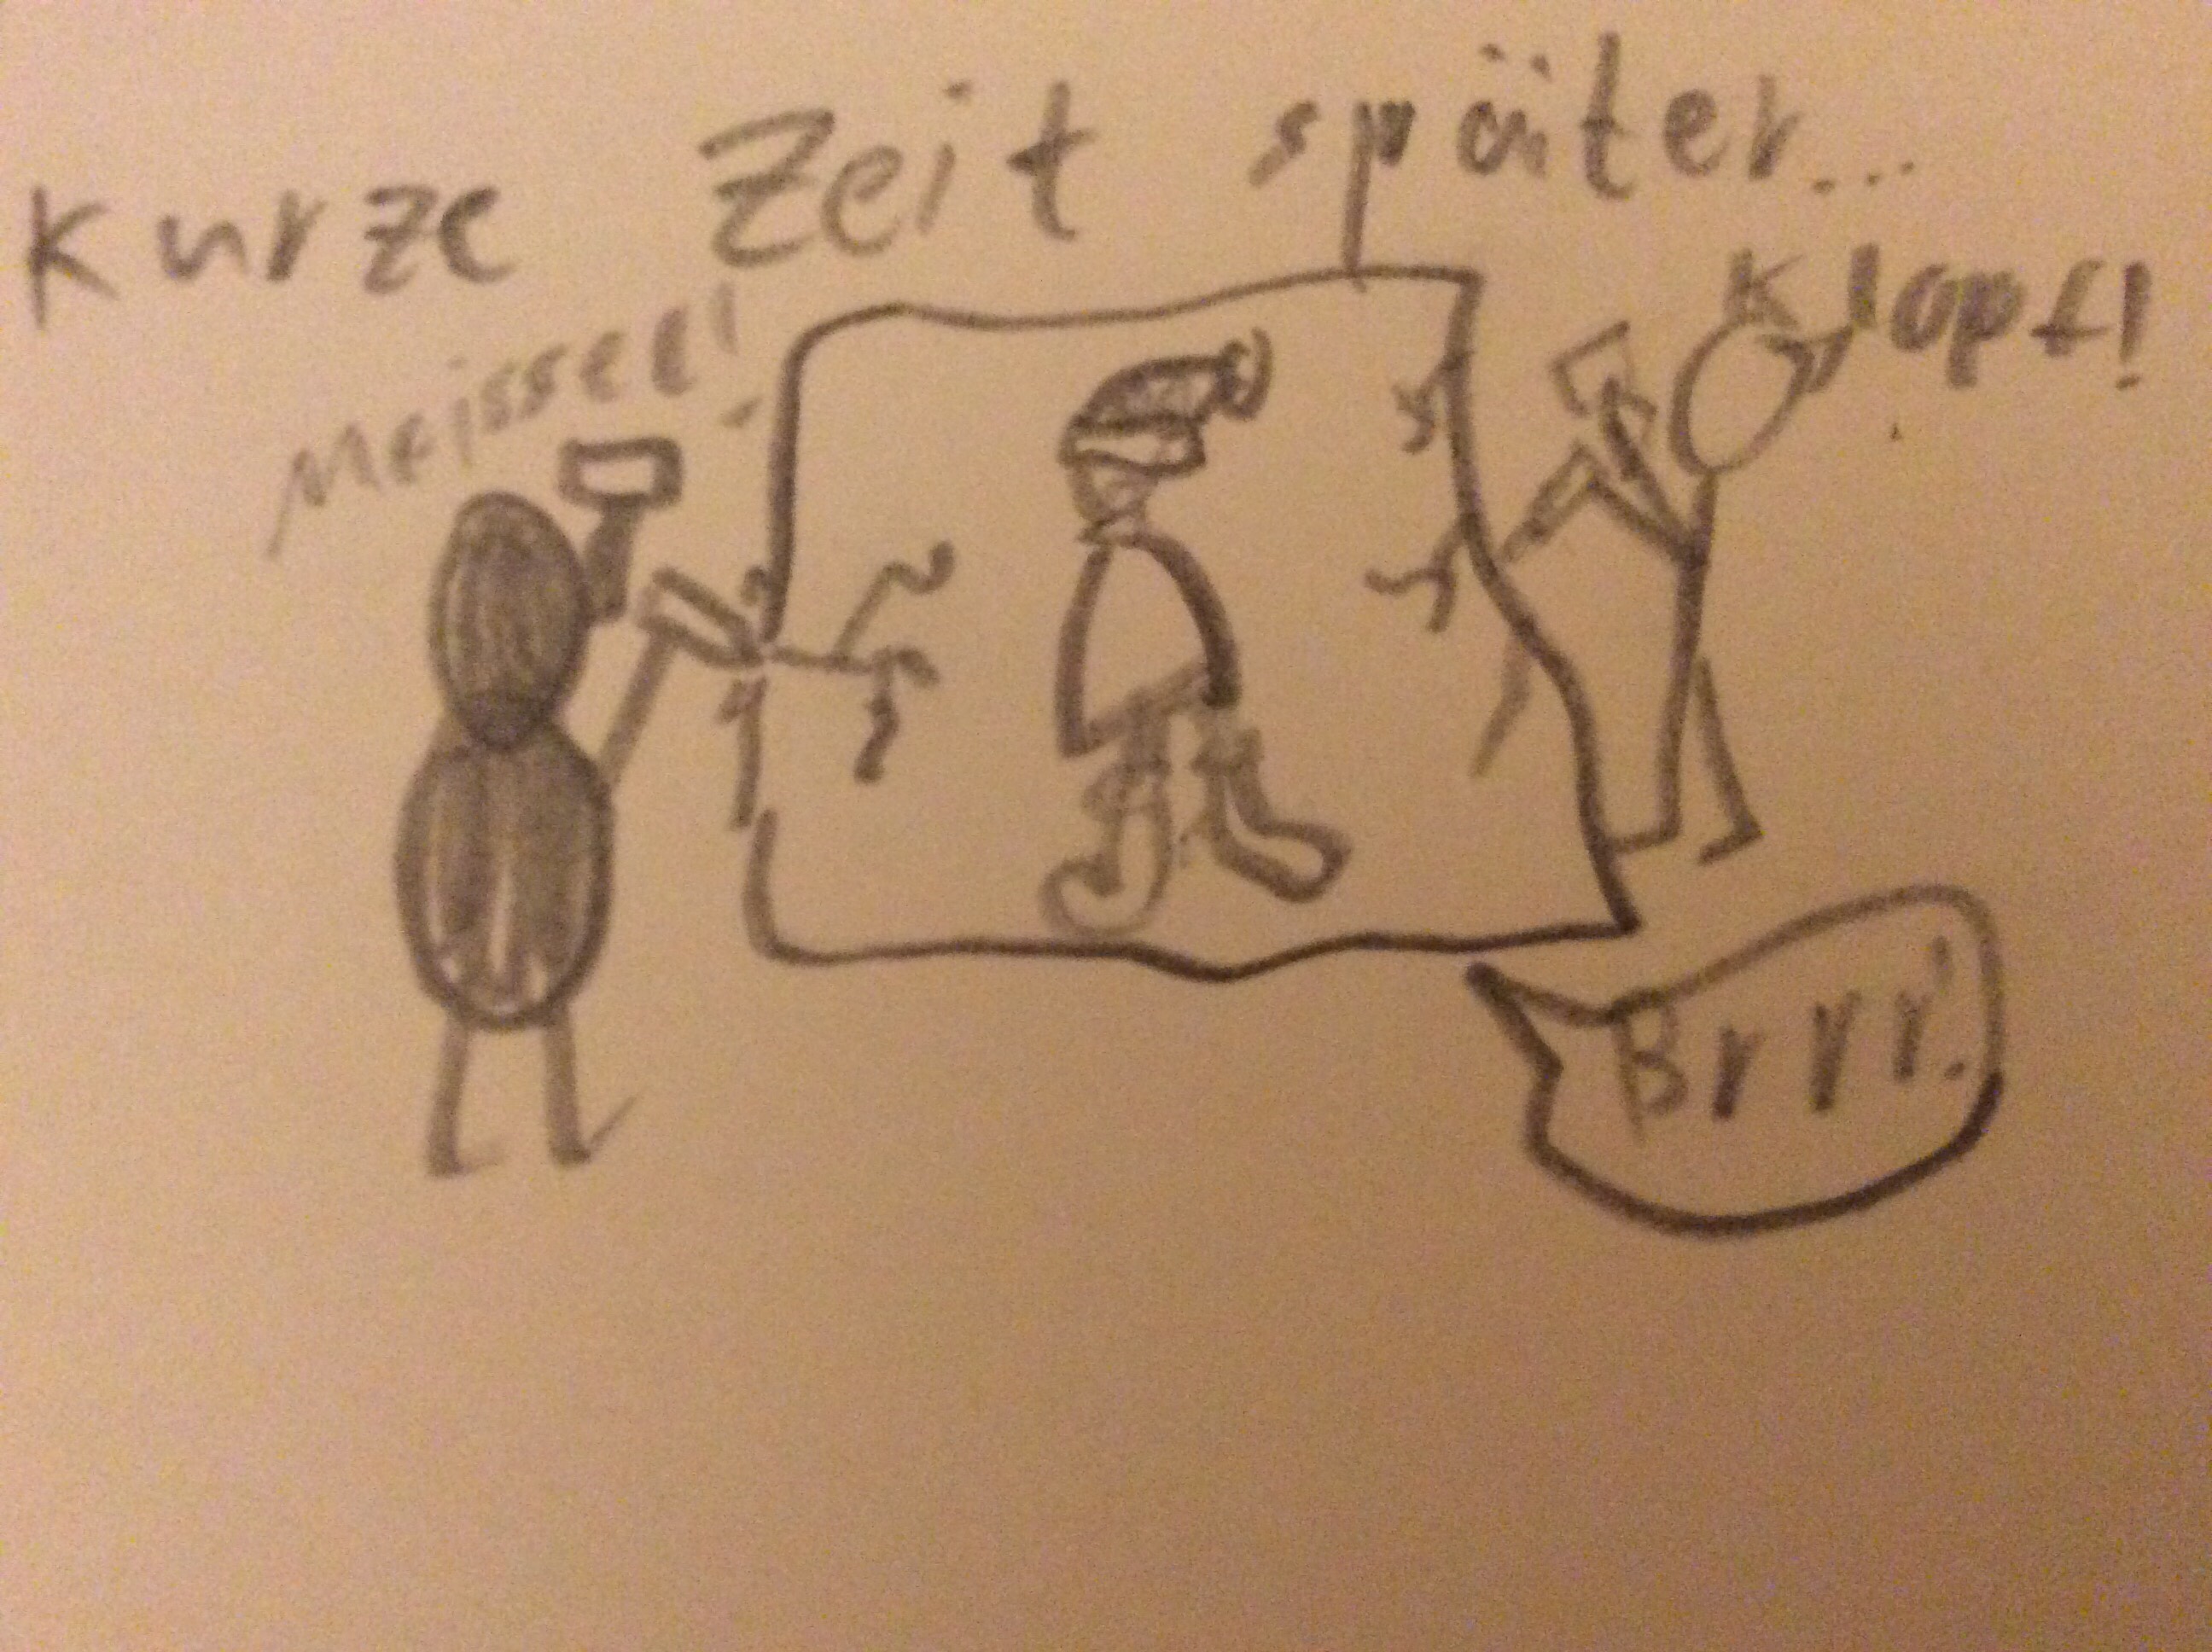 Kurze Zeit später...
Meissel!
Klopf!
Brrr!